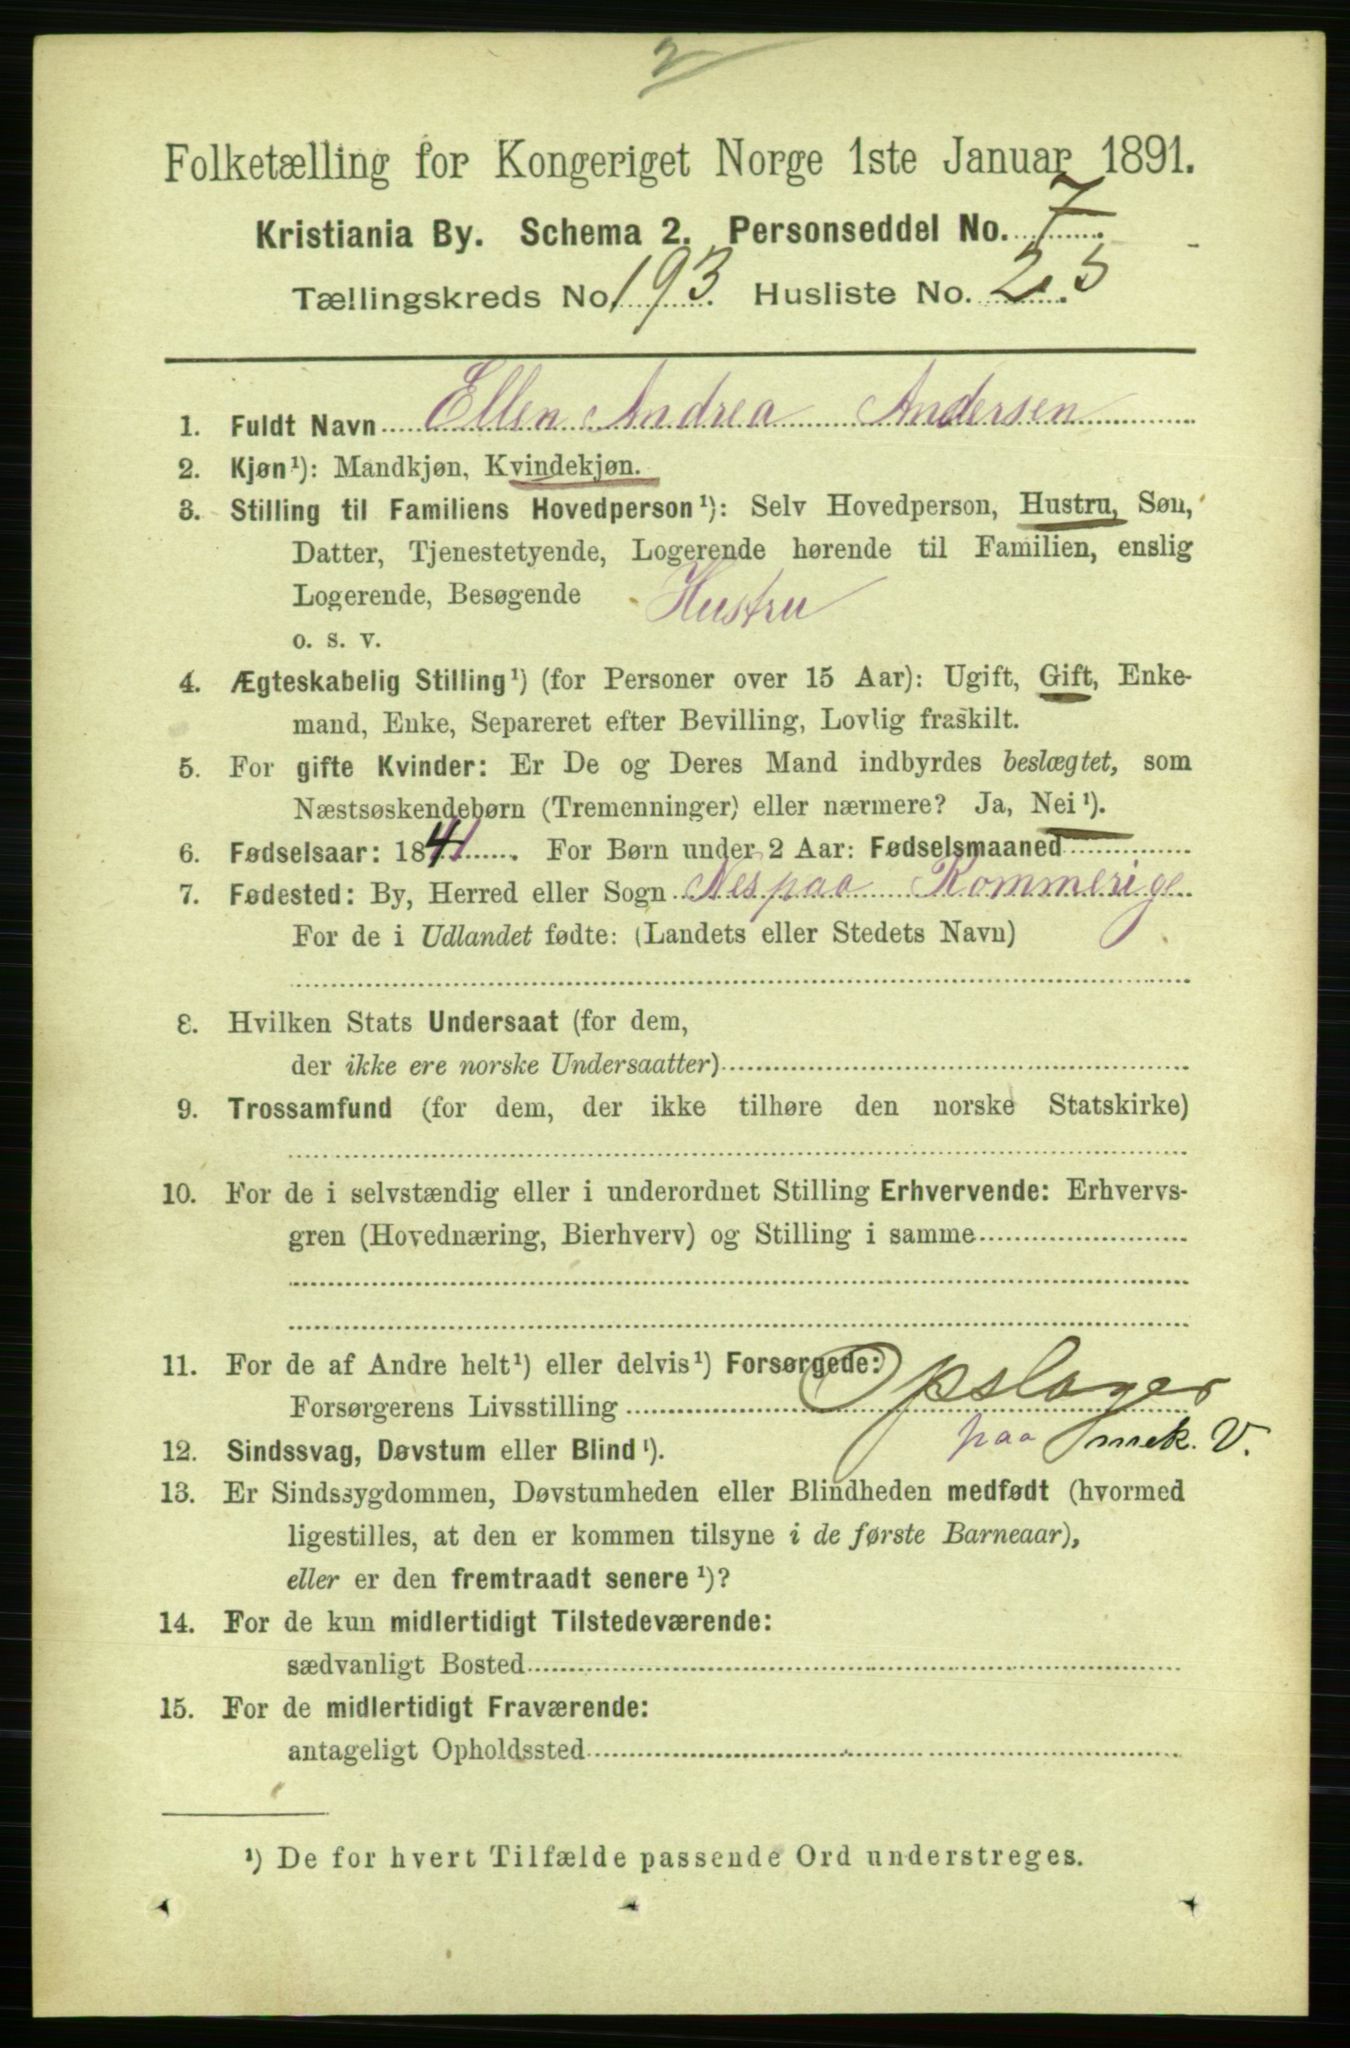 2
Folketælling for Kongeriget Norge 1ste Januar 1891.
Kristiania By. Schema 2. Personseddel No. 7.
Tællingskreds No. 193. Husliste No. 25
1. Fuldt Navn Ellen Andrea Andersen
2. Kjøn¹): Mandkjøn, Kvindekjøn.
3. Stilling til Familiens Hovedperson¹): Selv Hovedperson, Hustru, Søn,
Datter, Tjenestetyende, Logerende hørende til Familien, enslig
Logerende, Besøgende Hustru
o. s. v.
4. Ægteskabelig Stilling¹) (for Personer over 15 Aar): Ugift, Gift, Enke-
mand, Enke, Separeret efter Bevilling, Lovlig fraskilt.
5. For gifte Kvinder: Er De og Deres Mand indbyrdes beslægtet, som
Næstsøskendebørn (Tremenninger) eller nærmere? Ja, Nei¹).
6. Fødselsaar: 1841. For Børn under 2 Aar: Fødselsmaaned
7. Fødested: By, Herred eller Sogn Nes paa Rommerige
For de i Udlandet fødte: (Landets eller Stedets Navn)
8. Hvilken Stats Undersaat (for dem,
der ikke ere norske Undersaatter)
9. Trossamfund (for dem, der ikke tilhøre den norske Statskirke)
10. For de i selvstændig eller i underordnet Stilling Erhvervende: Erhvervs-
gren (Hovednæring, Bierhverv) og Stilling i samme
11. For de af Andre helt¹) eller delvis¹) Forsørgede:
Forsørgerens Livsstilling Opslager
paa mek. V.
12. Sindssvag, Døvstum eller Blind¹).
13. Er Sindssygdommen, Døvstumheden eller Blindheden medfødt (hvormed
ligestilles, at den er kommen tilsyne i de første Barneaar),
eller er den fremtraadt senere¹)?
14. For de kun midlertidigt Tilstedeværende:
sædvanligt Bosted
15. For de midlertidigt Fraværende:
antageligt Opholdssted
¹) De for hvert Tilfælde passende Ord understreges.